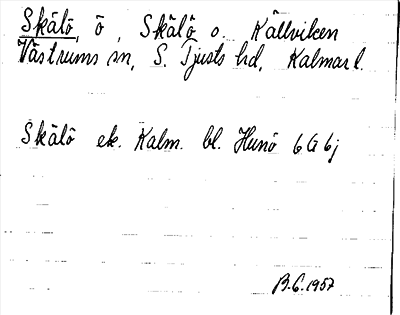 Skälö, ö, Skälö o. Källviken
Västrums sn, S. Tjusts hd, Kalmar l.
Skälö ek. Kalm. bl. Hunö 6G 6j
B.G. 1957